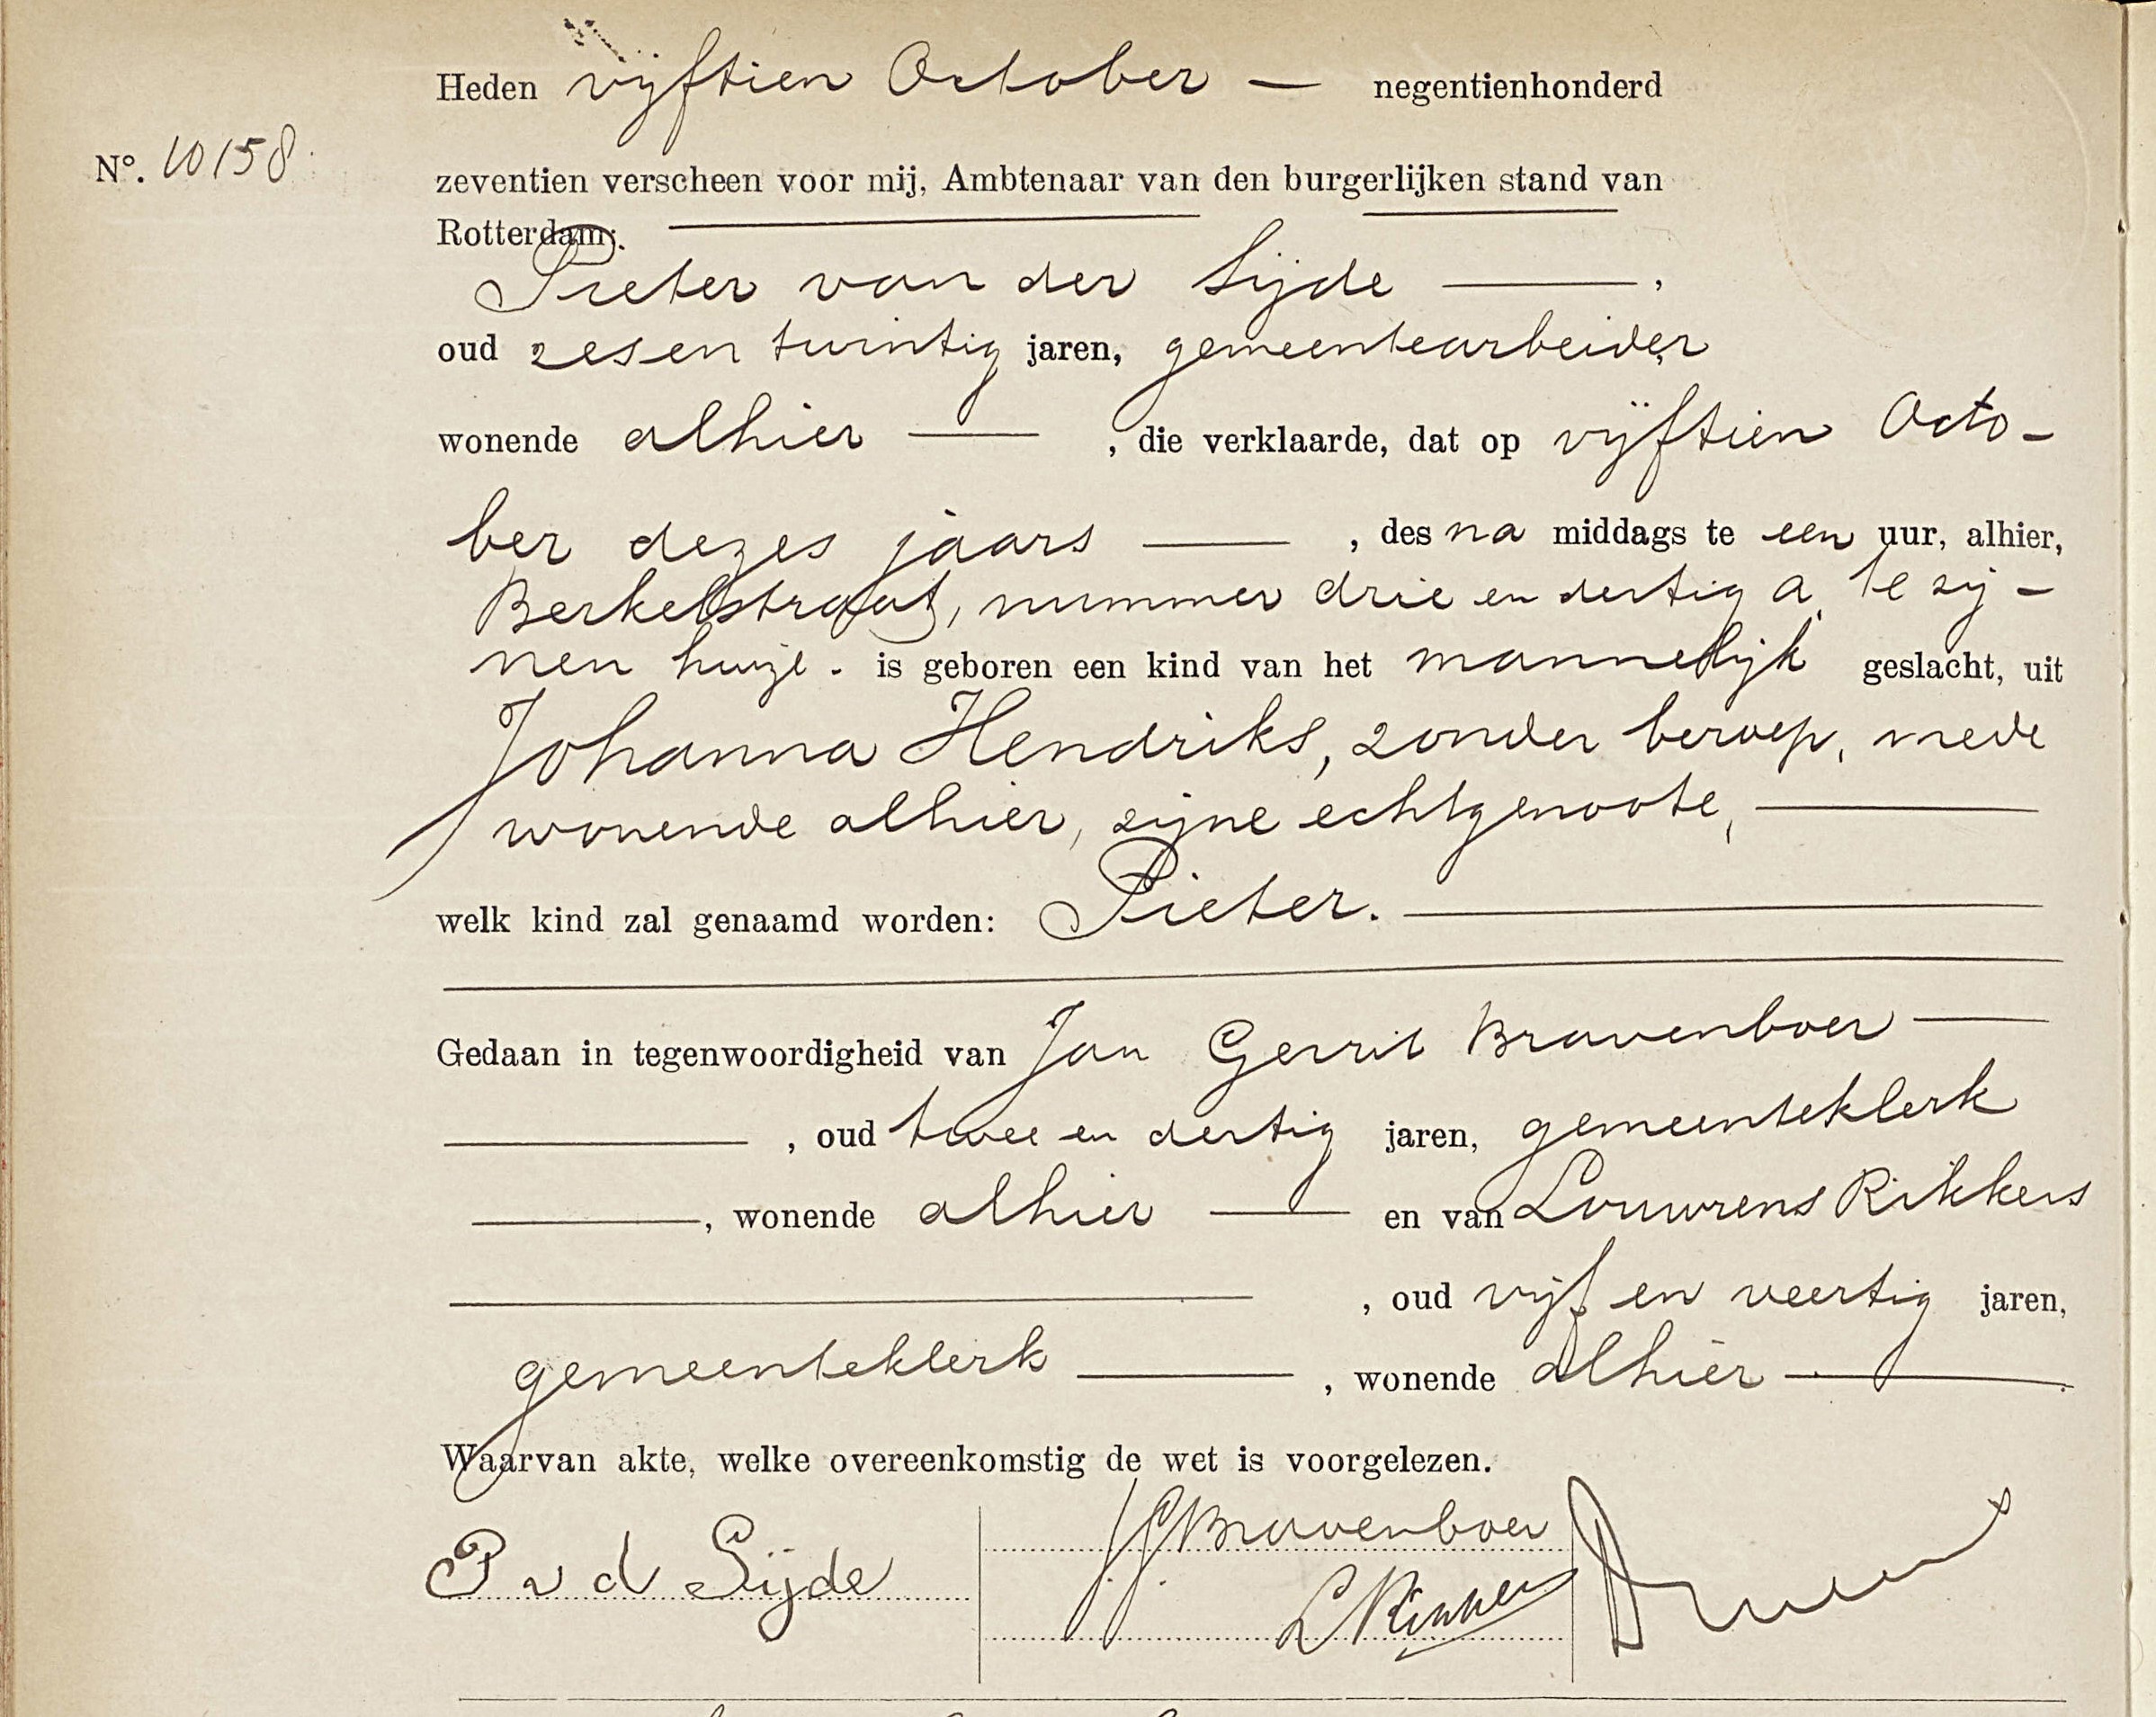 Heden vijftien October — negentienhonderd
Nº. 10158
zeventien verscheen voor mij, Ambtenaar van den burgerlijken stand van
Rotterdam:
Pieter van der Sijde ———,
oud zesentwintig jaren, gemeentearbeider
wonende alhier ———, die verklaarde, dat op vijftien Octo-
ber dezes jaars ———, des na middags te een uur, alhier,
Berkelstraat, nummer drie en dertig a, te zij-
nen huize - is geboren een kind van het mannelijk geslacht, uit
Johanna Hendriks, zonder beroep, mede
wonende alhier, zijne echtgenoote, ———
welk kind zal genaamd worden: Pieter. ———
Gedaan in tegenwoordigheid van Jan Gerrit Bravenboer ———
———, oud twee en dertig jaren, gemeenteklerk
———, wonende alhier ——— en van Louwrens Rikkers
———, oud vijf en veertig jaren,
gemeenteklerk ———, wonende alhier ———.
Waarvan akte, welke overeenkomstig de wet is voorgelezen.
P v d Sijde
JGBravenboer
L Rikkers